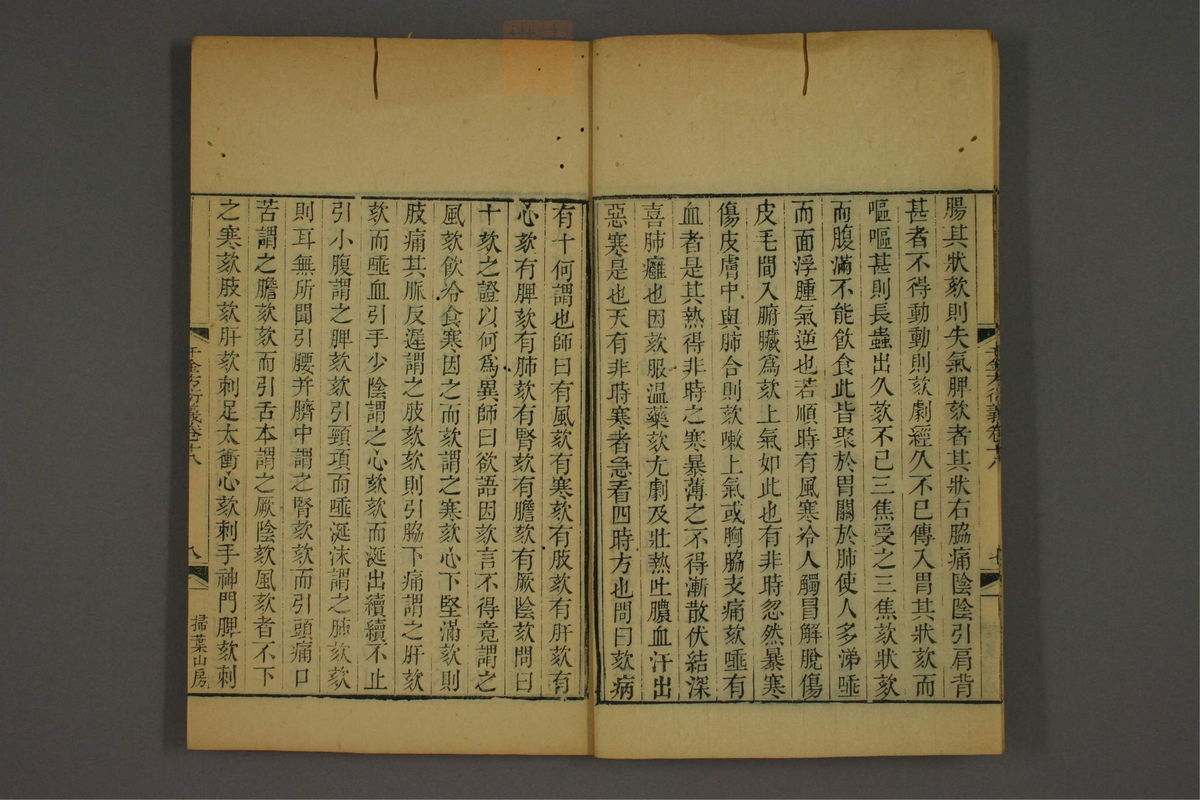 腸其狀欬則失氣脾欬者其狀右脇痛陰陰引肩背
甚者不得動動則欬劇經久不已傳入胃其狀欬而
嘔嘔甚則長蟲出久欬不已三焦受之三焦欬狀欬
而腹滿不能飲食此皆聚於胃關於肺使人多涕唾
而面浮腫氣逆也若順時有風寒冷人觸冒解脫傷
皮毛間入腑臟爲欬上氣如此也有非時忽然暴寒
傷皮膚中與肺合則欬嗽上氣或胸脇支痛欬唾有
血者是其熱得非時之寒暴薄之不得漸散伏結深
喜肺癰也因欬服温藥欬尤劇及壯熱吐膿血汗出
惡寒是也天有非時寒者急看四時方也問曰欬病
有十何謂也師曰有風欬有寒欬有肢欬有肝欬有
心欬有脾欬有肺欬有腎欬有膽欬有厥陰欬問曰
十欬之證以何爲異師曰欲語因欬言不得竟謂之
風欬飲冷食寒因之而欬謂之寒欬心下堅滿欬則
肢痛其脈反遲謂之肢欬欬則引脇下痛謂之肝欬
欬而唾血引手少陰謂之心欬欬而涎出續續不止
引小腹謂之脾欬欬引頸項而唾涎沫謂之肺欬欬
則耳無所聞引腰并臍中謂之腎欬欬而引頭痛口
苦謂之膽欬欬而引舌本謂之厥陰欬風欬者不下
之寒欬肢欬肝欬刺足太衝心欬刺手神門脾欬刺
千金方衍義卷十八
八
掃葉山房